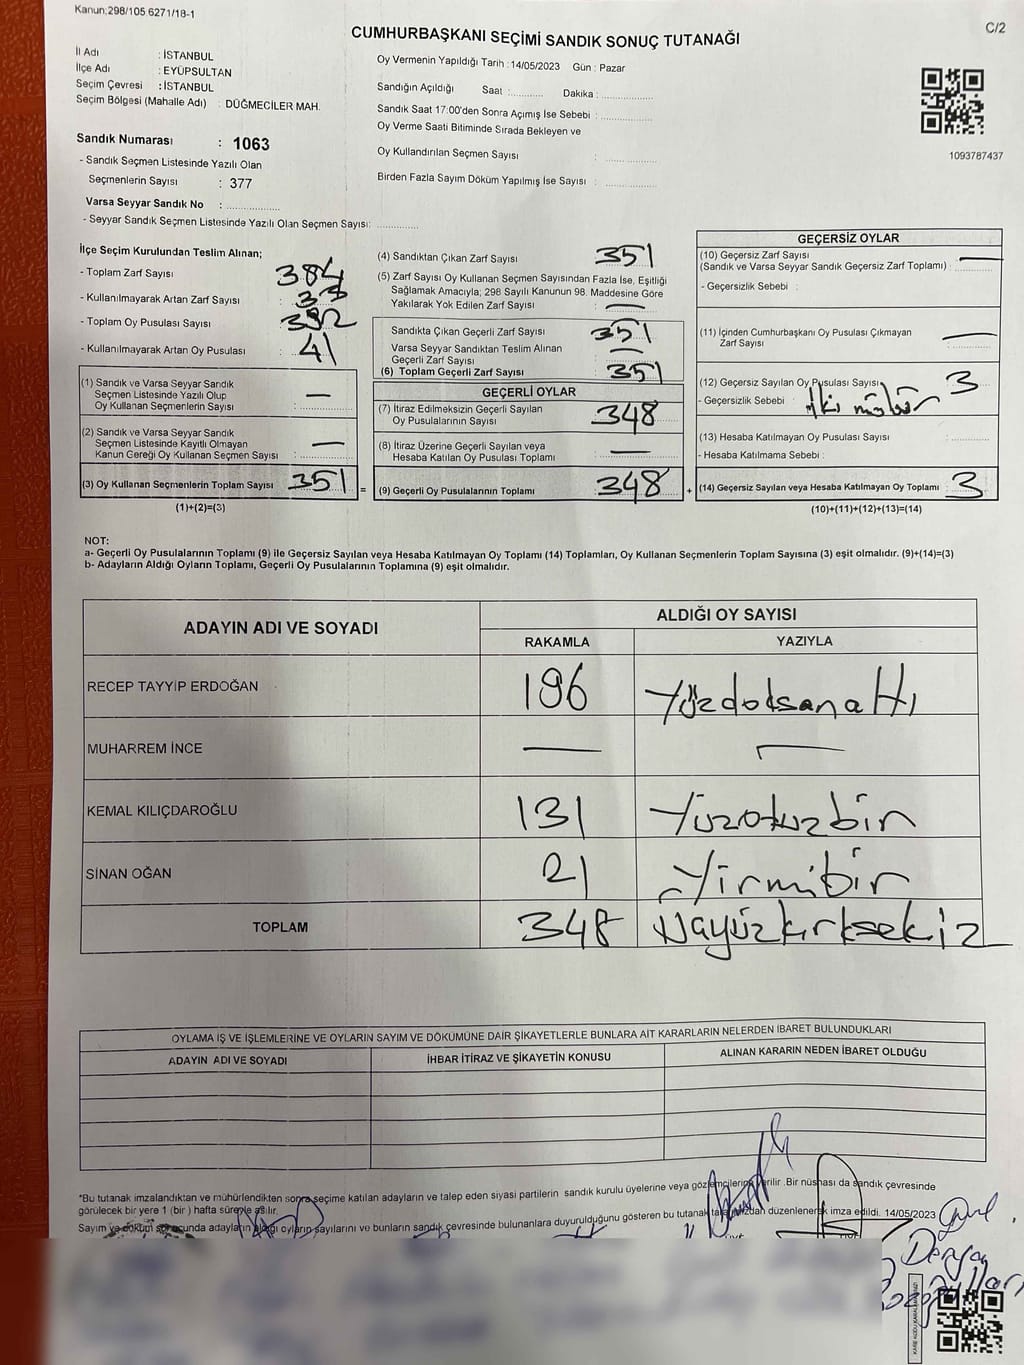 Kanun:298/105 6271/18-1
C/2
CUMHURBAŞKANI SEÇİMİ SANDIK SONUÇ TUTANAĞI
İl Adı : İSTANBUL
İlçe Adı : EYÜPSULTAN
Seçim Çevresi : İSTANBUL
Seçim Bölgesi (Mahalle Adı) : DÜĞMECİLER MAH.
Sandık Numarası : 1063
- Sandık Seçmen Listesinde Yazılı Olan
Seçmenlerin Sayısı : 377
Varsa Seyyar Sandık No : ................
- Seyyar Sandık Seçmen Listesinde Yazılı Olan Seçmen Sayısı: ............
Oy Vermenin Yapıldığı Tarih : 14/05/2023 Gün : Pazar
Sandığın Açıldığı Saat :.......... Dakika : ................
Sandık Saat 17:00'den Sonra Açımış İse Sebebi : ................
Oy Verme Saati Bitiminde Sırada Bekleyen ve
Oy Kullandırılan Seçmen Sayısı : ................
Birden Fazla Sayım Döküm Yapılmış İse Sayısı : ................
1093787437
İlçe Seçim Kurulundan Teslim Alınan;
- Toplam Zarf Sayısı 384
- Kullanılmayarak Artan Zarf Sayısı :
- Toplam Oy Pusulası Sayısı :
- Kullanılmayarak Artan Oy Pusulası : 41
(1) Sandık ve Varsa Seyyar Sandık
Seçmen Listesinde Yazılı Olup
Oy Kullanan Seçmenlerin Sayısı : —
(2) Sandık ve Varsa Seyyar Sandık
Seçmen Listesinde Kayıtlı Olmayan
Kanun Gereği Oy Kullanan Seçmen Sayısı : —
(3) Oy Kullanan Seçmenlerin Toplam Sayısı 351 =
(1)+(2)=(3)
(4) Sandıktan Çıkan Zarf Sayısı 351
(5) Zarf Sayısı Oy Kullanan Seçmen Sayısından Fazla İse, Eşitliği
Sağlamak Amacıyla; 298 Sayılı Kanunun 98. Maddesine Göre
Yakılarak Yok Edilen Zarf Sayısı : —
Sandıkta Çıkan Geçerli Zarf Sayısı 351
Varsa Seyyar Sandıktan Teslim Alınan
Geçerli Zarf Sayısı : —
(6) Toplam Geçerli Zarf Sayısı 351
GEÇERLİ OYLAR
(7) İtiraz Edilmeksizin Geçerli Sayılan
Oy Pusulalarının Sayısı 348
(8) İtiraz Üzerine Geçerli Sayılan veya
Hesaba Katılan Oy Pusulası Toplamı : —
(9) Geçerli Oy Pusulalarının Toplamı 348 +
GEÇERSİZ OYLAR
(10) Geçersiz Zarf Sayısı
(Sandık ve Varsa Seyyar Sandık Geçersiz Zarf Toplamı) : —
- Geçersizlik Sebebi :
(11) İçinden Cumhurbaşkanı Oy Pusulası Çıkmayan
Zarf Sayısı : —
(12) Geçersiz Sayılan Oy Pusulası Sayısı 3
- Geçersizlik Sebebi : İki mühür
(13) Hesaba Katılmayan Oy Pusulası Sayısı : ............
- Hesaba Katılmama Sebebi :
(14) Geçersiz Sayılan veya Hesaba Katılmayan Oy Toplamı 3
(10)+(11)+(12)+(13)=(14)
NOT:
a- Geçerli Oy Pusulalarının Toplamı (9) ile Geçersiz Sayılan veya Hesaba Katılmayan Oy Toplamı (14) Toplamları, Oy Kullanan Seçmenlerin Toplam Sayısına (3) eşit olmalıdır. (9)+(14)=(3)
b- Adayların Aldığı Oyların Toplamı, Geçerli Oy Pusulalarının Toplamına (9) eşit olmalıdır.
ADAYIN ADI VE SOYADI ALDIĞI OY SAYISI
RAKAMLA YAZIYLA
RECEP TAYYİP ERDOĞAN 196 Yüzdoksanaltı
MUHARREM İNCE — —
KEMAL KILIÇDAROĞLU 131 Yüzotuzbir
SİNAN OĞAN 21 Yirmibir
TOPLAM 348 Üçyüzkırksekiz
OYLAMA İŞ VE İŞLEMLERİNE VE OYLARIN SAYIM VE DÖKÜMÜNE DAİR ŞİKAYETLERLE BUNLARA AİT KARARLARIN NELERDEN İBARET BULUNDUKLARI
ADAYIN ADI VE SOYADI İHBAR İTİRAZ VE ŞİKAYETİN KONUSU ALINAN KARARIN NEDEN İBARET OLDUĞU
*Bu tutanak imzalandıktan ve mühürlendikten sonra seçime katılan adayların ve talep eden siyasi partilerin sandık kurulu üyelerine veya gözlemcilerine verilir .Bir nüshası da sandık çevresinde
görülecek bir yere 1 (bir ) hafta süreyle asılır.
Sayım ve döküm sonucunda adayların aldığı oyların sayılarını ve bunların sandık çevresinde bulunanlara duyurulduğunu gösteren bu tutanak tarafımızdan düzenlenerek imza edildi. 14/05/2023